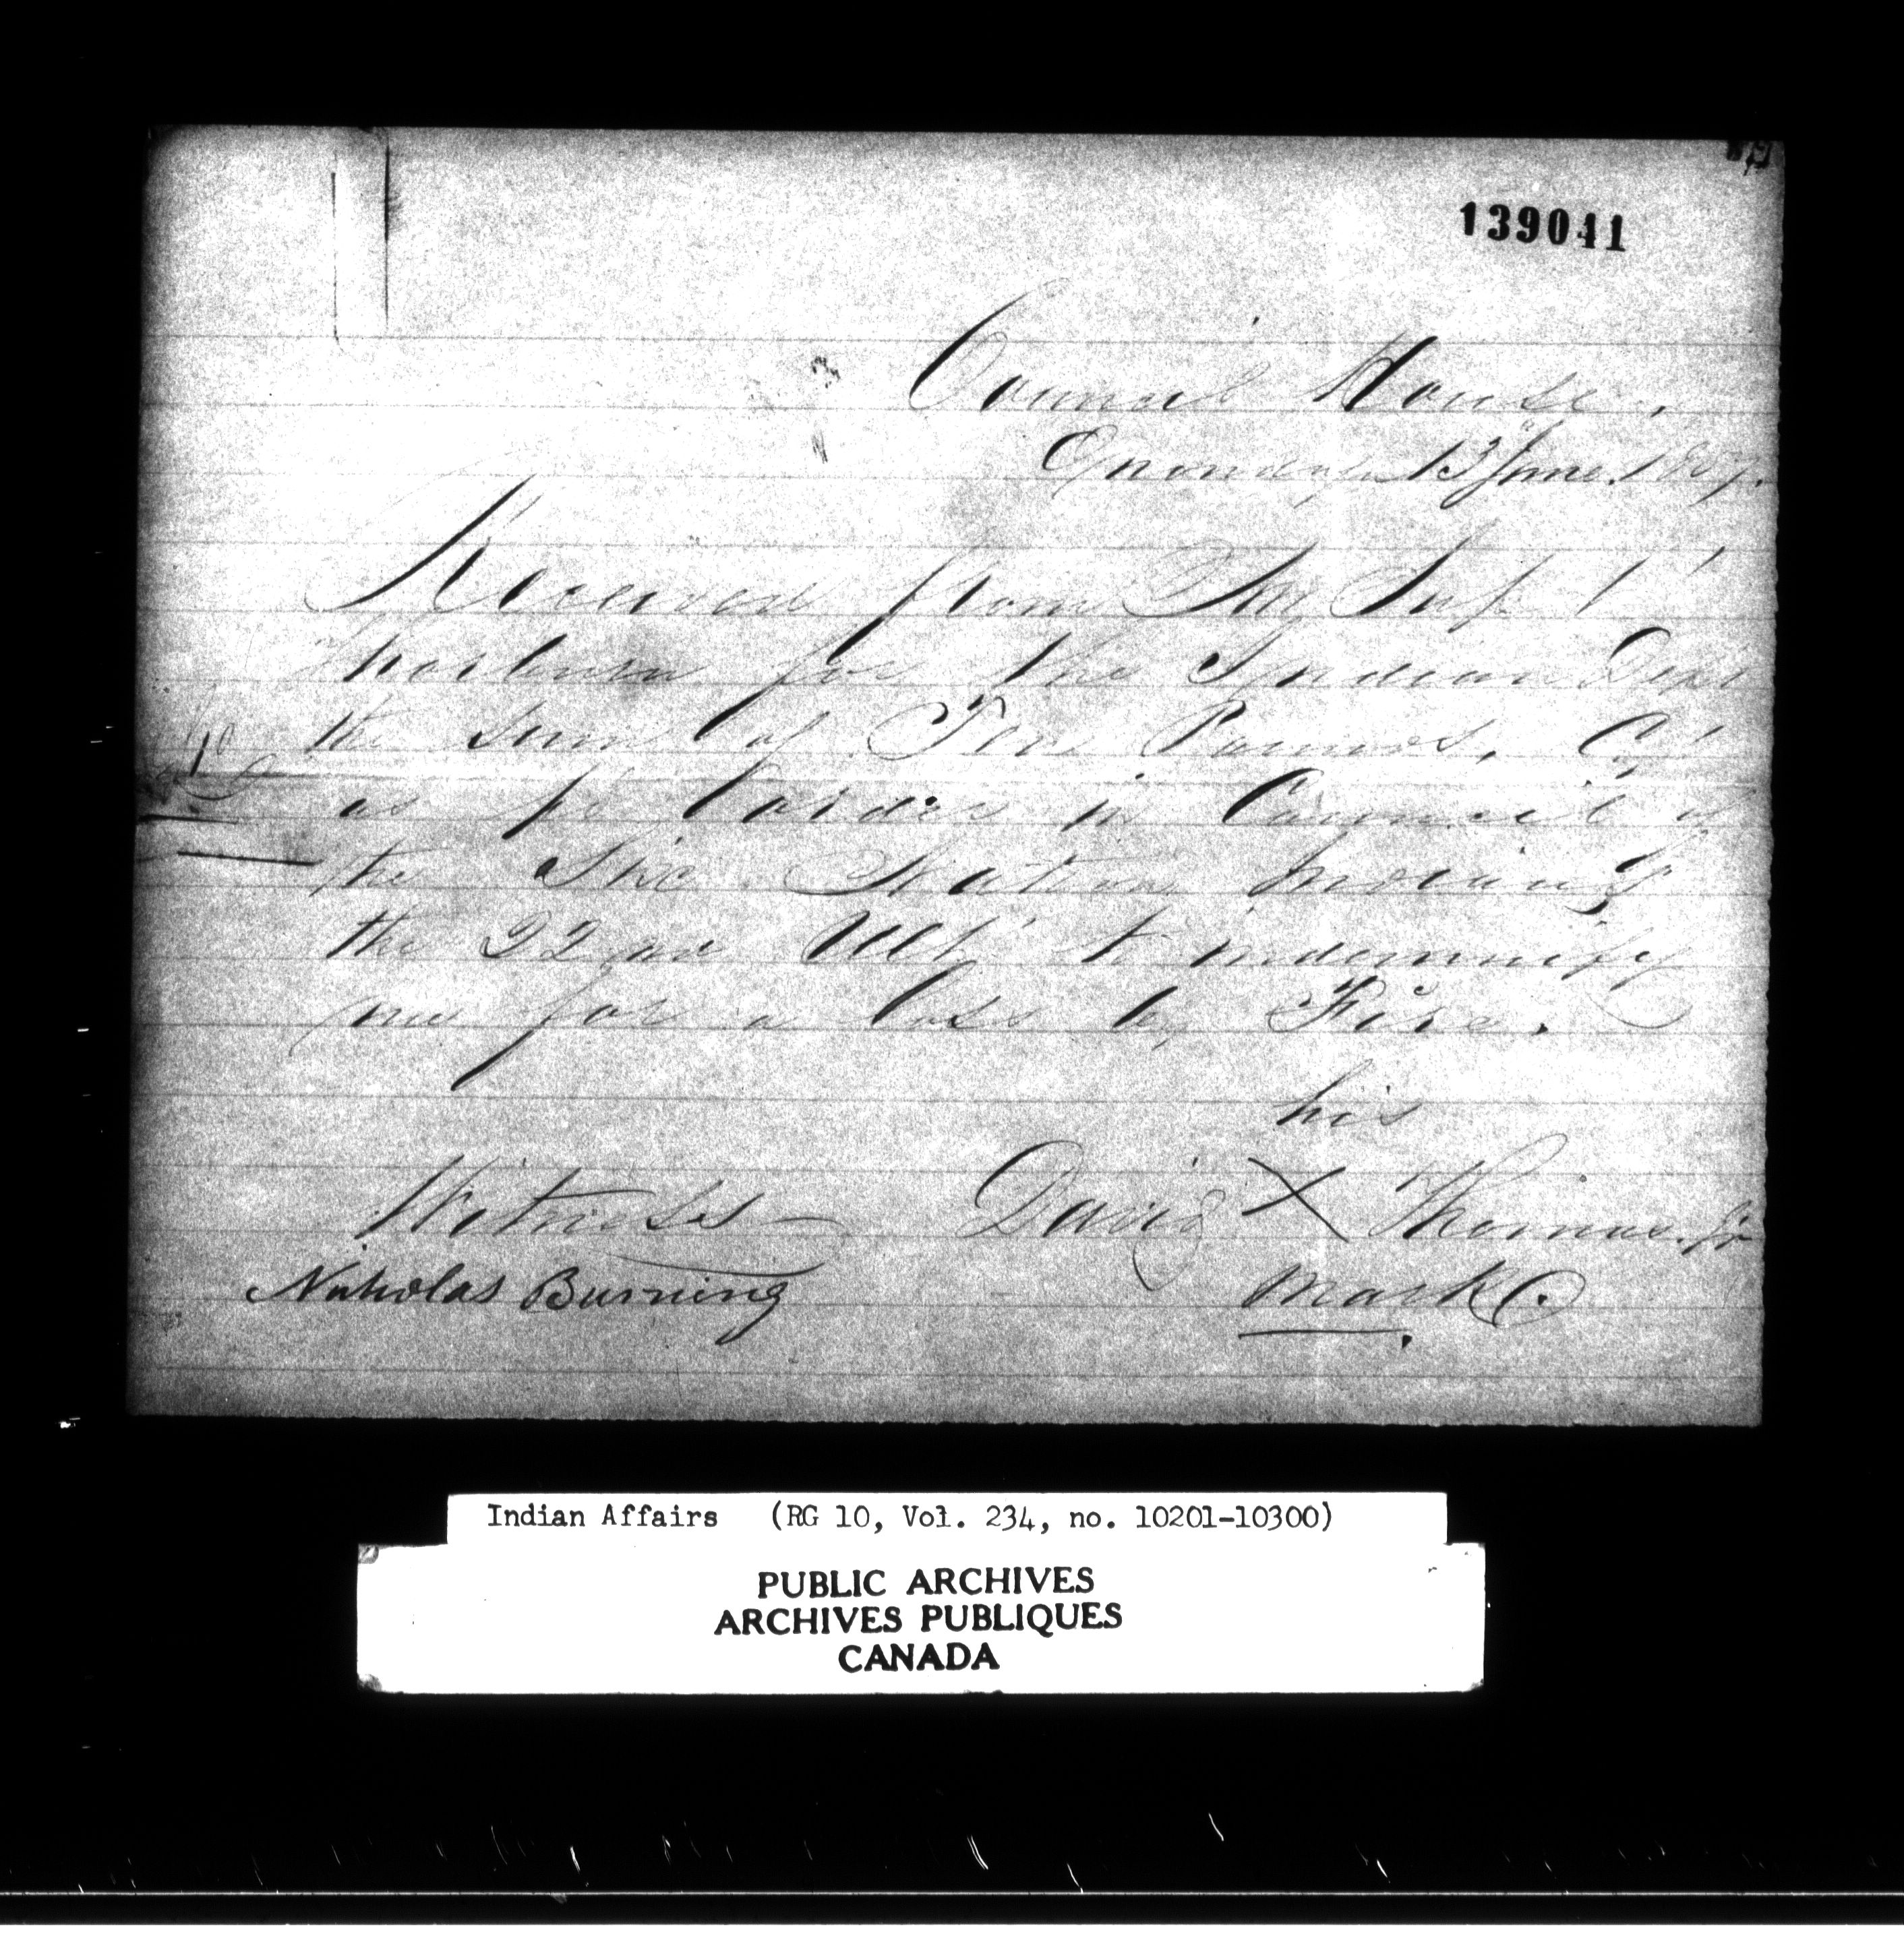 139041
Council House,
Onondaga 13 June. 1857.
Received from Supt
Thorburn for the Indian Dept
the sum of Ten Pounds, Cy
as pr order in Council of
the Six Nation Indians
the 22nd Ulto to indemnify
me for a loss by Fire.
his
Witness David X Thomas. Jr
Nicholas Burning mark
Indian Affairs (RG 10, Vol. 234, no. 10201-10300)
PUBLIC ARCHIVES
ARCHIVES PUBLIQUES
CANADA